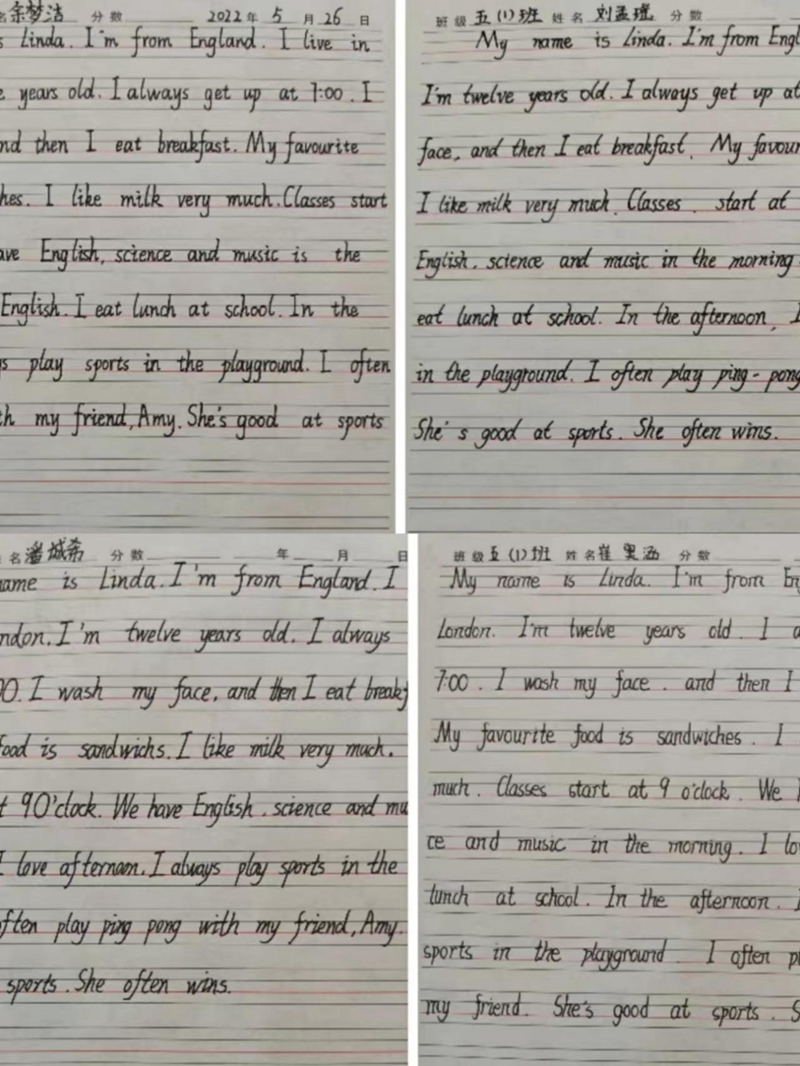 名 余梦洁 分数 2022年 5月 26日
s Linda. I'm from England. I live in
e years old. I always get up at 7:00. I
nd then I eat breakfast. My favourite
hes. I like milk very much. Classes start
ave English, science and music is the
English. I eat lunch at school. In the
s play sports in the playground. I often
th my friend, Amy. She's good at sports
班级 五(1)班 姓名 刘孟琨 分数
My name is Linda. I'm from Engl
I'm twelve years old. I always get up at
face, and then I eat breakfast. My favour
I like milk very much. Classes. start at
English. science and music in the morning
eat lunch at school. In the afternoon, I
in the playground. I often play ping-pong
She's good at sports. She often wins.
名 潘城希 分数 年 月 日
name is Linda. I'm from England. I
ndon. I'm twelve years old. I always
00. I wash my face, and then I eat breakf
food is sandwichs. I like milk very much.
t 9 O'clock. We have English, science and mu
I love afternoon. I always play sports in the
often play ping pong with my friend, Amy.
sports. She often wins.
班级 五(1)班 姓名 崔 涵 分数
My name is Linda. I'm from En
London. I'm twelve years old. I a
7:00. I wash my face. and then I
My favourite food is sandwiches. I
much. Classes start at 9 o'clock. We
ce and music in the morning. I lo
lunch at school. In the afternoon. I
sports in the playground I often p
my friend. She's good at sports. S